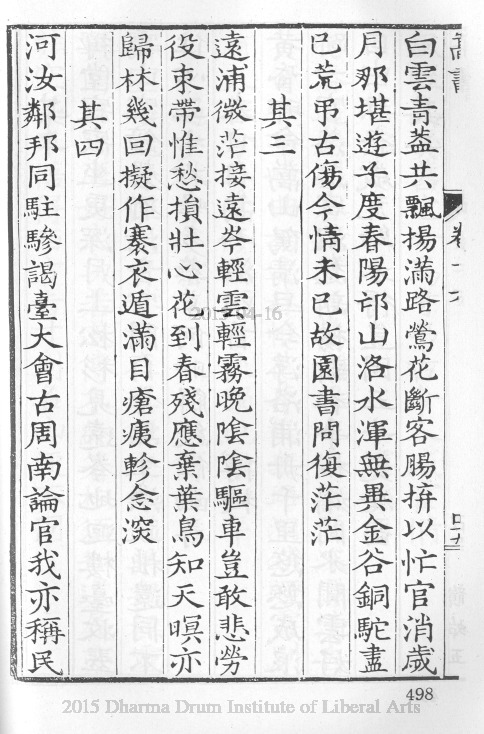 白雲青盖共飄揚滿路鶯花斷客腸拚以忙官消歲
月那堪遊子度春陽邙山洛水渾無異金谷銅駝盡
已荒弔古傷今情未已故園書問復茫茫
其三
遠浦微茫接遠岑輕雲輕霧晚陰陰驅車豈敢悲勞
役束帶惟愁損壯心花到春殘應棄葉鳥知天暝亦
歸林幾回擬作褰衣遁滿目瘡痍軫念深
其四
河汝鄰邦同駐驂謁臺大會古周南論官我亦稱民
498
2015-04-16
2015 Dharma Drum Institute of Liberal Arts